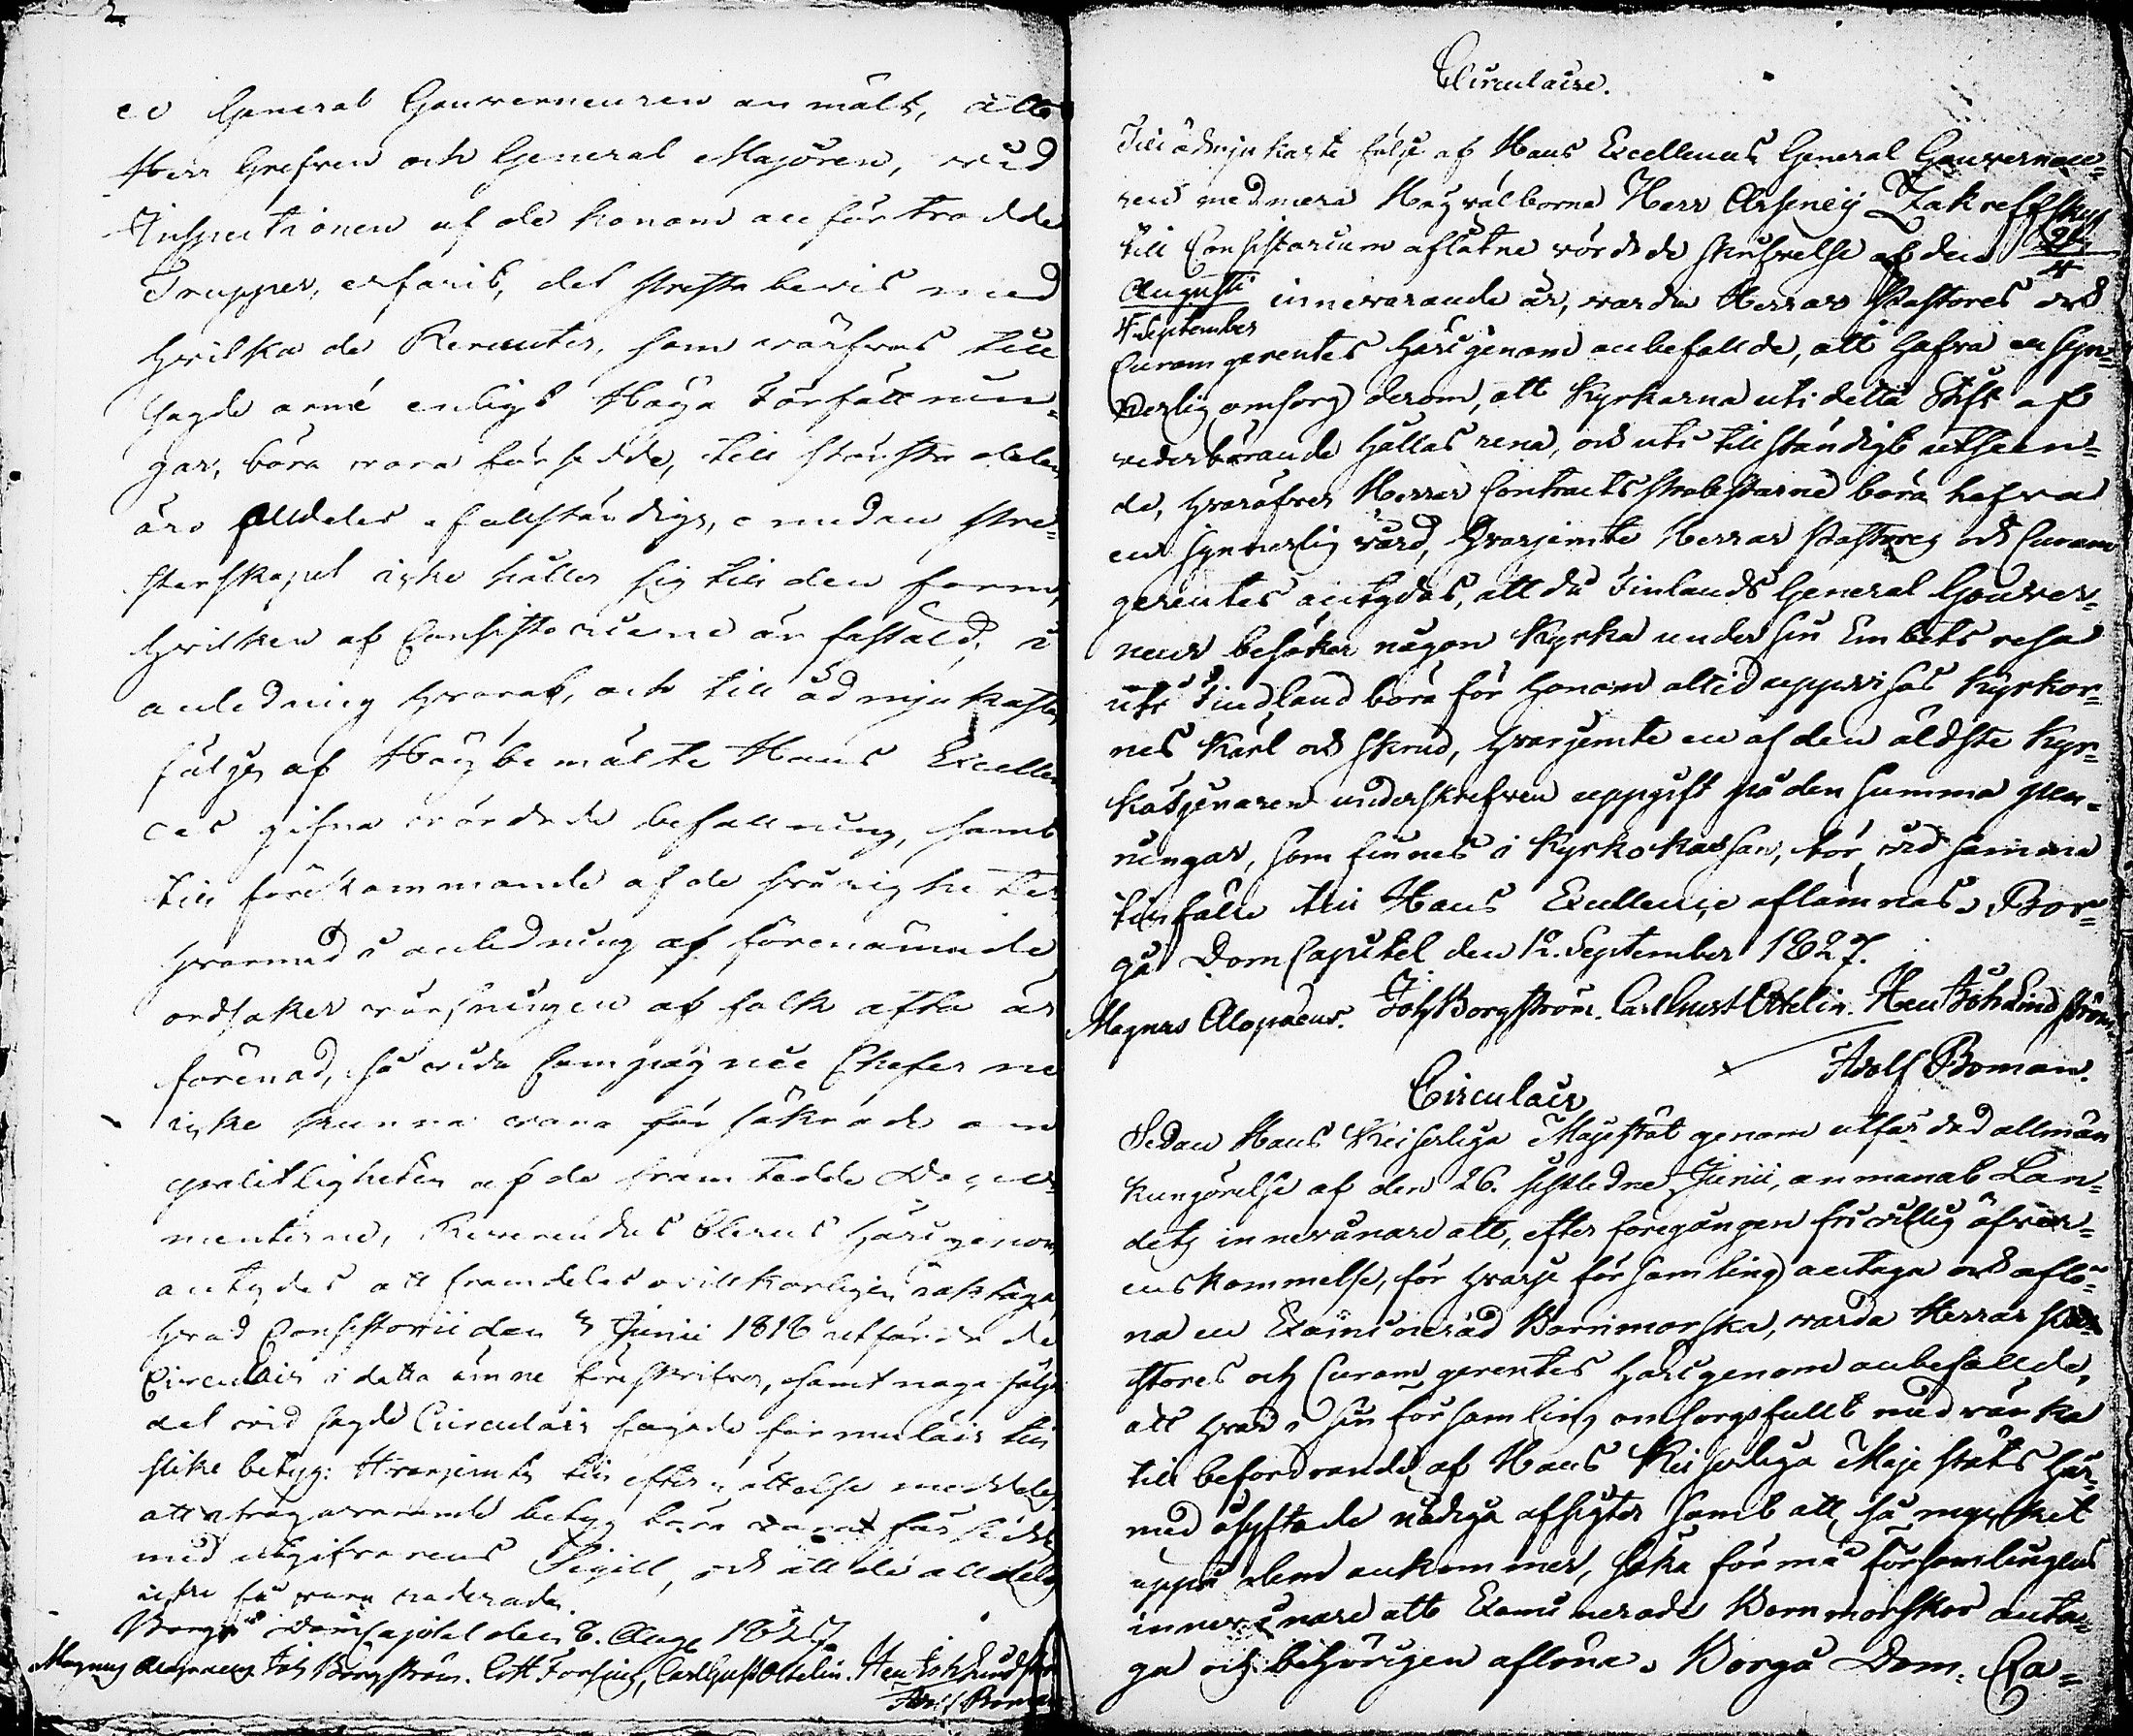 2
General Gouverneuren anmält, att
Herr Grefven och General Majoren, vid
Inspectionen af de honom anförtrodde
Trupper, erfarit, det Prestbevis med
hvilka de Recruter, som värfvas till
sagde armé enligt Höga Författnin¬
gar, böra vara försedde, till största delen
äro alldeles ofullständige, emedan Pre¬
sterskapet icke håller sig till den form,
hvilken af Consistorium är fastäld; i
anledning hvaraf, och till ödmjukaste
följe af Högbemälte Hans Excellen
ces gifna vördade befallning, samt
till förekommande af de svårigheter
hvarmed i anledning af förenämnde
orsaker värfningen af folk ofta är
förenad, så vida Compagnie Cheferne
icke kunna vara försäkrade om
pålitligheten af de framtedde Docu¬
menterne, Reverendus Clerus härigenom
antydes att framdeles ovillkorligen iakttaga
hvad Consistorii den 3 Junii 1818 utfärdade
Circulair i detta ämne föreskrifver, samt noga följa
det vid sagde Circulair fogade formulair till
slike betyg: Hvarjemte till efterrättelse meddelas
att ifrågavarande betyg böra vara försedde
med utgifvarens Sigill, och att de alldeles
icke få vara raderade.
Borgå DomCapitel den 8. Aug. 1827
Magnus Alopaeus Joh Borgström. Forsius, Carl Gust Ottelin. Hen Joh Lindström
Adolf Boman
Circulaire.
Till ödmjukaste följe af Hans Excellences General Gouverneu¬
rens med mera Högvälborne Herr Arseney Zakreffskys
till Consistorium aflåtne vördade skrifvelse af den
Augusti
4 September innevarande år, warda Herrar Pastores och
Curam gerentes härigenom anbefallde, att hafva en syn¬
nerlig omsorg derom, att Kyrkorna uti detta Stift af
vederbörande hållas rena, och uti tillständigt utseen¬
de, hvaröfver Herrar Contracts Probstarne böra hafva
en synnerlig vård, Hvarjemte Herrar Pastores och Curam
gerentes antydas, att då Finlands General Gouver¬
neur besöker någon Kyrka under sin Embets resa
uti Findland böra för honom altid uppvisas Kyrkor¬
nes Kärl och skrud, hvarjemte en af den äldste Kyr¬
kotjenaren underskrefven uppgift på den summa pen¬
ningar, som finnes i Kyrkokassan, bör vid samma
tillfälle till Hans Excellence aflämnas. Bor¬
gå DomCapitel den 12. September 1827.
Magnus Alopaeus. Joh Borgström. Carl Gust Ottelin. Hen Joh Lindström
Adolf Boman.
Circulair
Sedan Hans Keiserliga Majestät genom utfärdad allmän
kungörelse af den 26. sistledne Junii, anmanat Lan¬
dets innevånare att, efter föregången frivillig öfver¬
enskommelse, för hvarje församling antaga och aflö¬
na en Examinerad Barnmorska, warda Herrar Pa¬
stores och Curam gerentes härigenom anbefallde,
att hvar i sin församling omsorgsfullt medvärka
till befordrande af Hans Keiserliga Majestäts här¬
med åsyftade nådiga afsigter samt att, så mycket
uppå dem ankommer, söka förmå församlingens
innevånare att Examinerade Barnmorskor anta¬
ga och behörigen aflöna. Borgå Dom. Ca¬